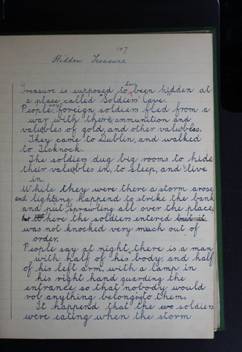 147
Hidden Treasure
Treasure is supposed to have been hidden at
a place called Soldiers Cave.
People foreign soldiers fled from a
war with there ammunition and
valubles of gold, and other valubles.
They came to Dublin, and walked
to Ticknock.
The soldiers dug big rooms to hide
their valubles in, to sleep, and live
in
While they were there a storm arose
and lighting happened to strike the bank
and put spreading all over the place
where the soldiers entered
was not knocked very much out of
order.
People say at night there is a man
with half of his body, and half
of his left arm, with a lamp in
his right hand guarding the
entrance, so that nobody would
rob anything belongs to them.
It happened that the soldiers
were eating when the storm